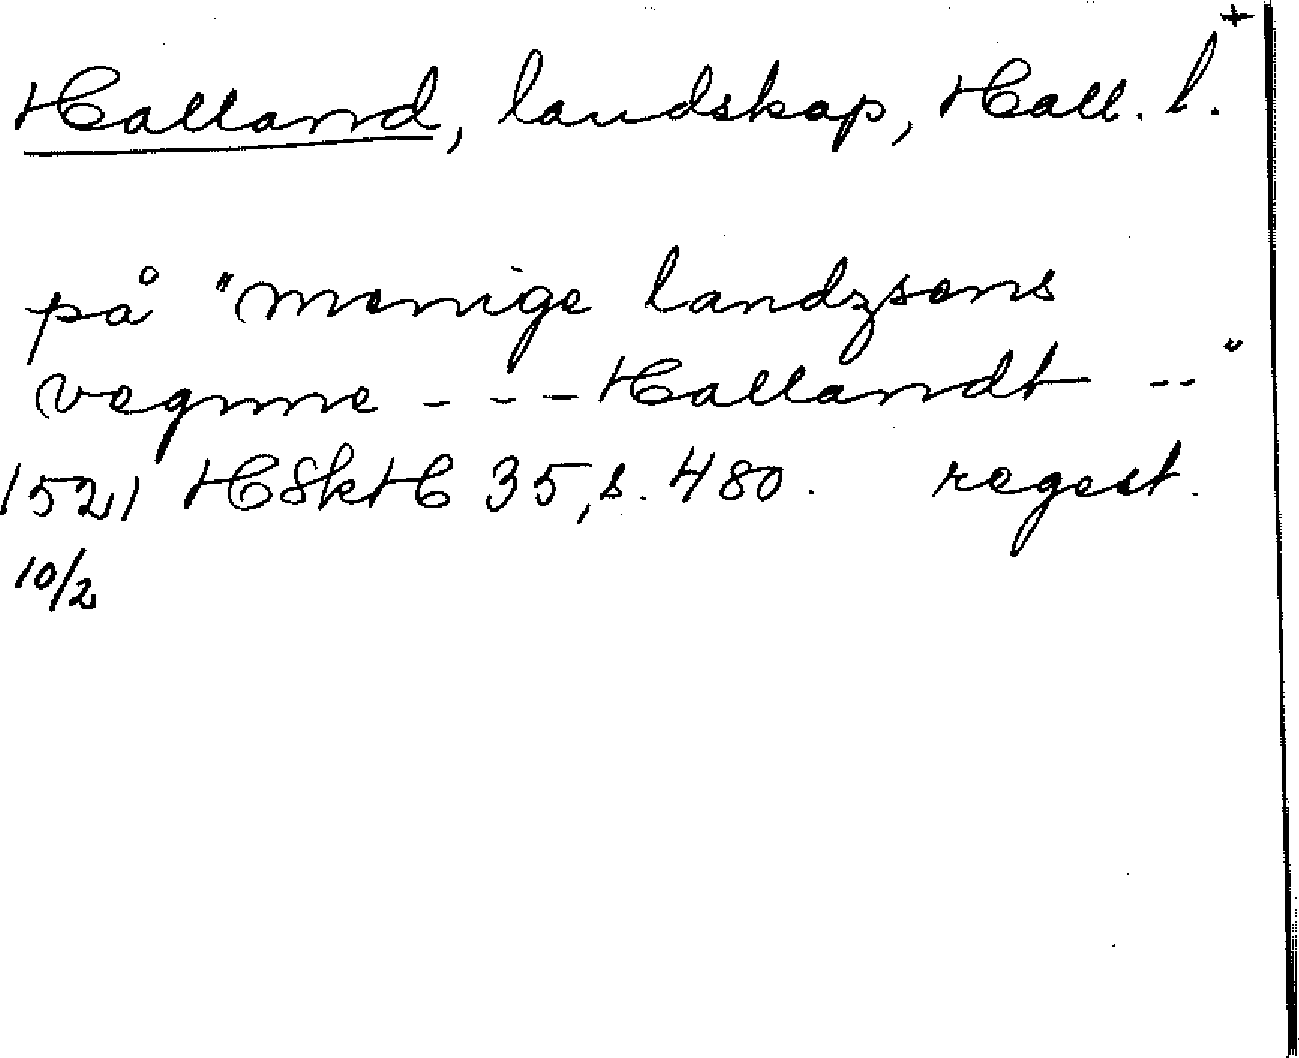 +
Halland, landskap, Hall. l.
på "menige landzsens
vegnne - - - Hallandt - -"
1521 HSkH 35, s. 480. regest.
10/2